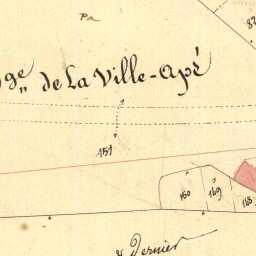 Pa
82
ge de La Ville-Apé
151
150
149
148
Dernier